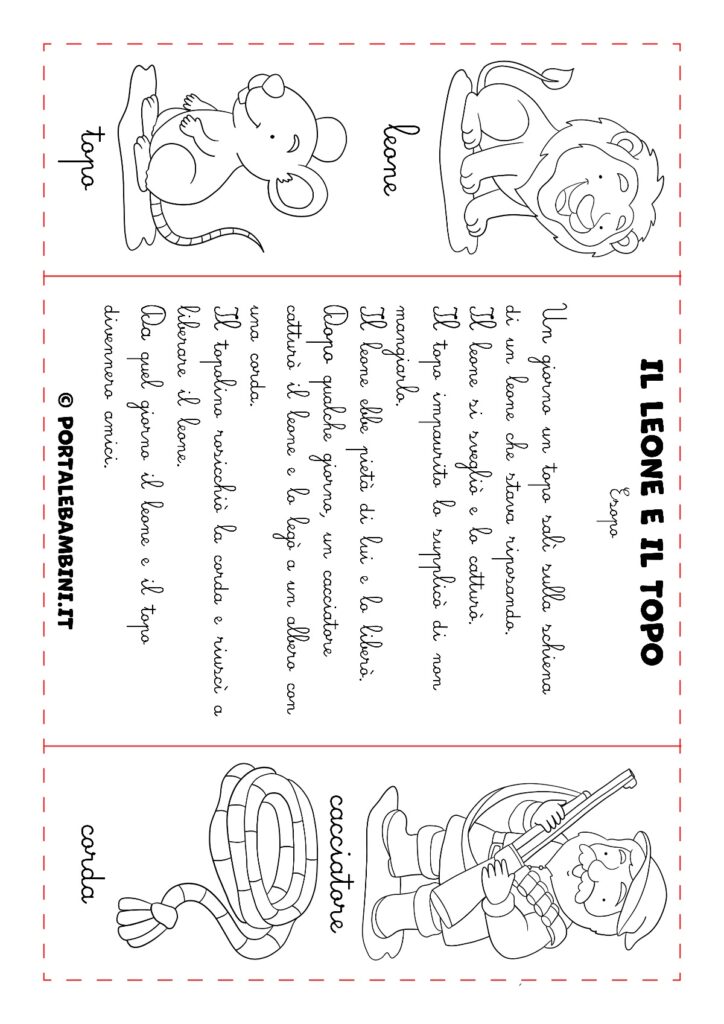 leone
topo
IL LEONE E IL TOPO
Esopo
Un giorno un topo salì sulla schiena
di un leone che stava riposando.
Il leone si svegliò e lo catturò.
Il topo impaurito lo supplicò di non
mangiarlo.
Il leone ebbe pietà di lui e lo liberò.
Dopo qualche giorno, un cacciatore
catturò il leone e lo legò a un albero con
una corda.
Il topolino rosicchiò la corda e riuscì a
liberare il leone.
Da quel giorno il leone e il topo
divennero amici.
© PORTALEBAMBINI.IT
cacciatore
corda